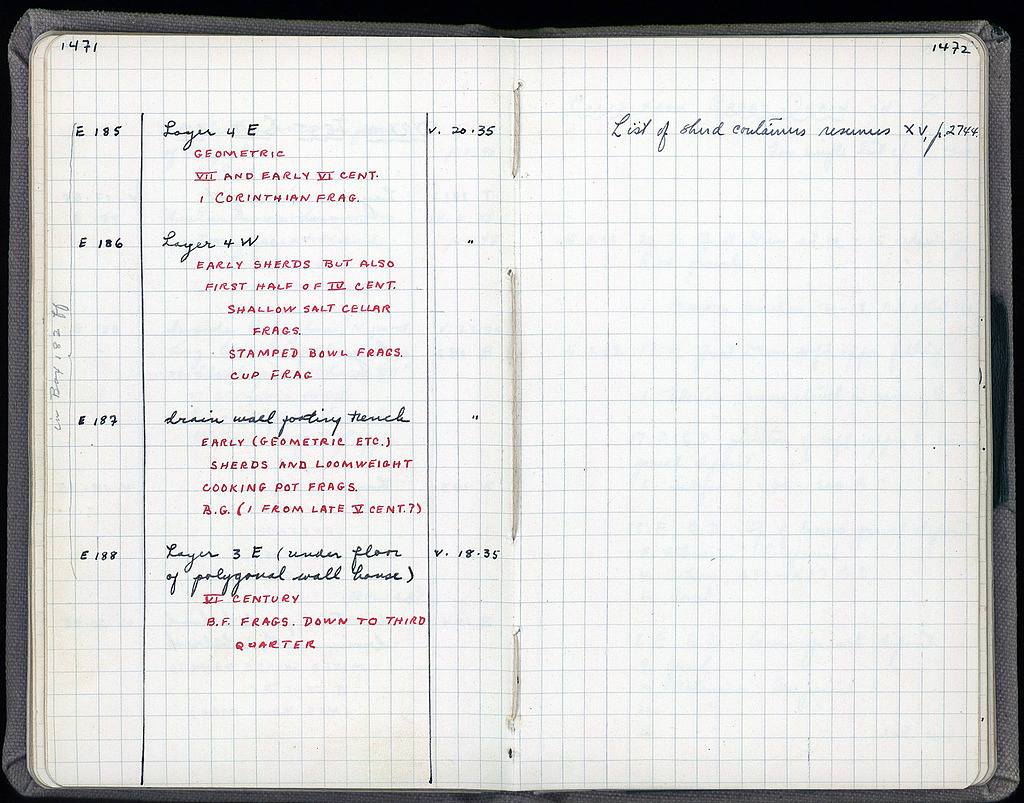 1471
E 185 Layer 4 E V. 20.35
GEOMETRIC
VII AND EARLY VI CENT.
1 CORINTHIAN FRAG.
E 186 Layer 4 W "
EARLY SHERDS BUT ALSO
FIRST HALF OF IV CENT.
SHALLOW SALT CELLAR
FRAGS.
STAMPED BOWL FRAGS.
CUP FRAG
in Box 182 ff
E 187 drain wall footing trench "
EARLY (GEOMETRIC ETC.)
SHERDS AND LOOMWEIGHT
COOKING POT FRAGS.
B.G. (1 FROM LATE V CENT.?)
E 188 Layer 3 E (under floor V. 18.35
of polygonal wall house)
VI CENTURY
B.F. FRAGS. DOWN TO THIRD
QUARTER
1472
List of sherd containers resumes XV, p.2744.